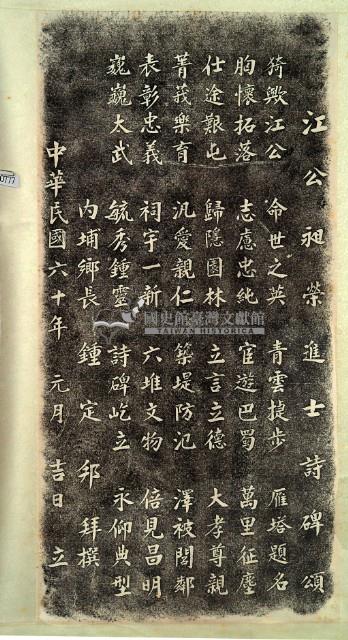 江公昶榮進士詩碑頌
猗歟江公 命世之英 青雲捷步 雁塔題名
胸懷拓落 志慮忠純 宦遊巴蜀 萬里征塵
仕途艱屯 歸隱園林 立言立德 大孝尊親
菁莪樂育 汎愛親仁 築堤防氾 澤被閭鄰
表彰忠義 祠宇一新 六堆文物 倍見昌明
巍巍太武 毓秀鍾靈 詩碑屹立 永仰典型
內埔鄉長 鍾定邦 拜撰
中華民國六十年 元月 吉日 立
國史館臺灣文獻館
TAIWAN HISTORICA